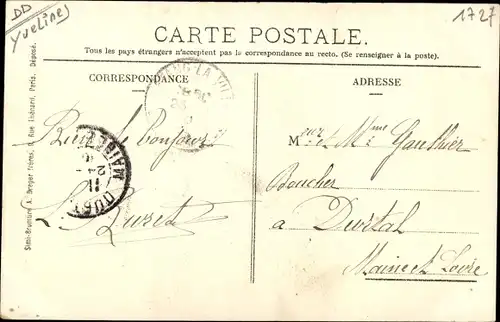 DD
Yveline)
1727
CARTE POSTALE.
Tous les pays étrangers n'acceptent pas la correspondance au recto. (Se renseigner à la poste).
CORRESPONDANCE
ADRESSE
Bien le bonjour
L. Buret
Mr et Mme Gauthier
Boucher
a Durtal
Maine et Loire
Simi-Bromure A. Breger frères, 9, Rue Thénard, Paris. Déposé.